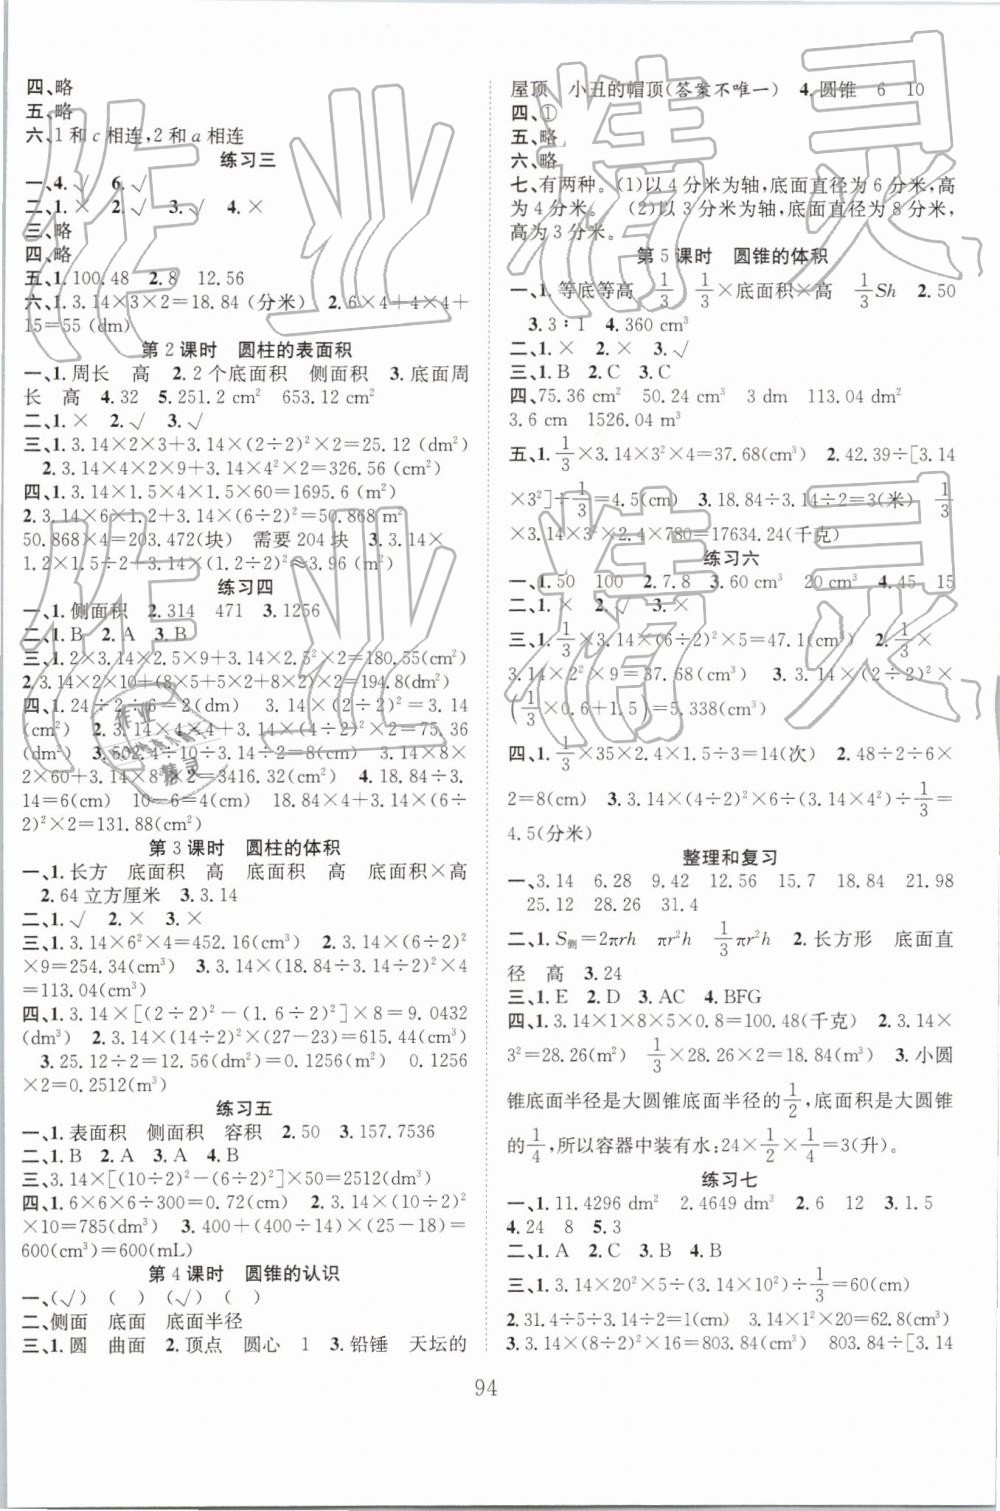 四、略
五、略
六、1 和 c 相连,2 和 a 相连
练习三
一、4. √ 6. √
二、1. × 2. √ 3. √ 4. ×
三、略
四、略
五、1. 100.48 2. 8 12.56
六、1. 3.14×3×2=18.84 (分米) 2. 6×4+4×4+
15=55 (dm)
第 2 课时 圆柱的表面积
一、1. 周长 高 2. 2 个底面积 侧面积 3. 底面周
长 高 4. 32 5. 251.2 cm² 653.12 cm²
二、1. × 2. √ 3. √
三、1. 3.14×2×3+3.14×(2÷2)²×2=25.12 (dm²)
2. 3.14×4×2×9+3.14×4²×2=326.56 (cm²)
四、1. 3.14×1.5×4×1.5×60=1695.6 (m²)
2. 3.14×6×1.2+3.14×(6÷2)²=50.868 m²
50.868×4=203.472(块) 需要 204 块 3. 3.14×
1.2×1.5÷2+3.14×(1.2÷2)²≈3.96 (m²)
练习四
一、1. 侧面积 2. 314 471 3. 1256
二、1. B 2. A 3. B
三、1. 2×3.14×2.5×9+3.14×2.5²×2=180.55(cm²)
2. 3.14×2×10+(8×5+5×2+8×2)×2=194.8(cm²)
四、1. 24÷2÷6=2(dm) 3.14×(4÷2)²=12.56
(cm²) 2. 3.14×4×4+3.14×(4÷2)²×2=75.36
(cm²) 3. 502.4÷10÷3.14÷2=8(cm) 3.14×8×
2×60+3.14×8²×2=3416.32(cm²) 4. 18.84÷3.
14=6(cm) 10-6=4(cm) 18.84×4+3.14×(6÷
2)²×2=131.88(cm²)
第 3 课时 圆柱的体积
一、1. 长方 底面积 高 底面积 高 底面积×高
2. 64 立方厘米 3. 3.14
二、1. √ 2. × 3. ×
三、1. 3.14×6²×4=452.16(cm³) 2. 3.14×(6÷2)²
×9=254.34(cm³) 3. 3.14×(18.84÷3.14÷2)²×4
=113.04(cm³)
四、1. 3.14×[(2÷2)²-(1.6÷2)²]×8=9.0432
(dm³) 2. 3.14×(14÷2)²×(27-23)=615.44(cm³)
3. 25.12÷2=12.56(dm²)=0.1256(m²) 0.1256
×2=0.2512(m³)
练习五
一、1. 表面积 侧面积 容积 2. 50 3. 157.7536
二、1. B 2. A 3. A 4. B
三、3.14×[(10÷2)²-(6÷2)²]×50=2512(dm³)
四、1. 6×6×6÷300=0.72(cm) 2. 3.14×(10÷2)²
×10=785(dm³) 3. 400+(400÷14)×(25-18)=
600(cm³)=600(mL)
第 4 课时 圆锥的认识
一、(√) ( ) (√) ( )
二、侧面 底面 底面半径
三、1. 圆 曲面 2. 顶点 圆心 1 3. 铅锤 天坛的
屋顶 小丑的帽顶(答案不唯一) 4. 圆锥 6 10
四、①
五、略
六、略
七、有两种。(1)以 4 分米为轴,底面直径为 6 分米,高
为 4 分米。 (2)以 3 分米为轴,底面直径为 8 分米,
高为 3 分米。
第 5 课时 圆锥的体积
一、1. 等底等高 1/3 1/3×底面积×高 1/3Sh 2. 50
3. 3∶1 4. 360 cm³
二、1. × 2. × 3. √
三、1. B 2. C 3. C
四、75.36 cm³ 50.24 cm³ 3 dm 113.04 dm²
3.6 cm 1526.04 m³
五、1. 1/3×3.14×3²×4=37.68(cm³) 2. 42.39÷[3.14
×3²]÷1/3=4.5(cm) 3. 18.84÷3.14÷2=3(米) 1/3
×3.14×3²×2.4×780=17634.24(千克)
练习六
一、1. 50 100 2. 7.8 3. 60 cm³ 20 cm³ 4. 45 15
二、1. √ 2. √ 3. ×
三、1. 1/3×3.14×(6÷2)²×5=47.1(cm³) 2. 1/3×
3.14×2×2²×9=37.68(cm³) 3. 3.14×(2÷2)²×
(1/3×0.6+1.5)=5.338(cm³)
四、1. 1/3×35×2.4×1.5÷3=14(次) 2. 48÷2÷6×
2=8(cm) 3. 3.14×(4÷2)²×6÷(3.14×4²)÷1/3=
4.5(分米)
整理和复习
一、3.14 6.28 9.42 12.56 15.7 18.84 21.98
25.12 28.26 31.4
二、1. S侧=2πrh πr²h 1/3πr²h 2. 长方形 底面直
径 高 3. 24
三、1. E 2. D 3. AC 4. BFG
四、1. 3.14×1×8×5×0.8=100.48(千克) 2. 3.14×
3²=28.26(m²) 1/3×28.26×2=18.84(m³) 3. 小圆
锥底面半径是大圆锥底面半径的1/2,底面积是大圆锥
的1/4,所以容器中装有水:24×1/2×1/4=3(升)。
练习七
一、1. 11.4296 dm² 2.4649 dm³ 2. 6 12 3. 1.5
4. 24 8 5. 3
二、1. A 2. C 3. B 4. B
三、1. 3.14×20²×5÷(3.14×10²)÷1/3=60(cm)
2. 31.4÷5÷3.14÷2=1(cm) 3.14×1²×20=62.8(cm³)
3. 3.14×(8÷2)²×16=803.84(cm³) 803.84÷[3.14
94
作业精灵
作业精灵